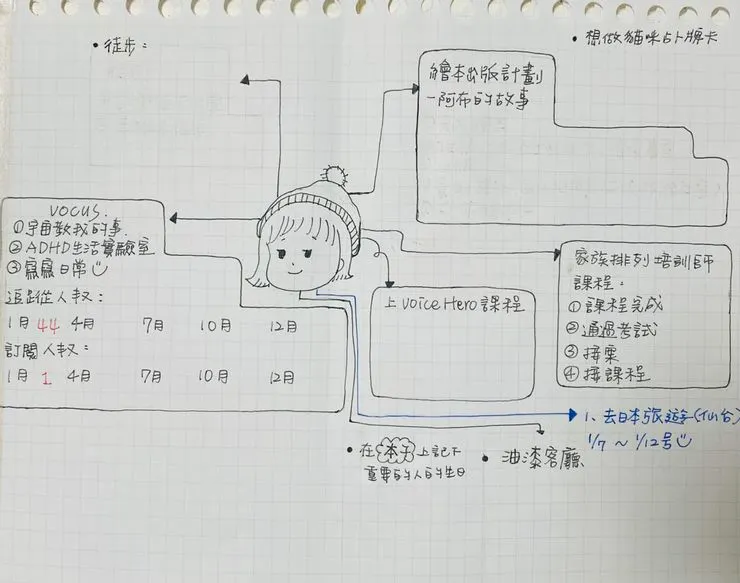 • 徒步：
• 想做貓咪占卜牌卡
繪本出版計劃
—阿布的故事
VOCUS.
①宇宙教我的事.
②ADHD生活實驗室
③寫寫日常
追蹤人數：
1月 44 4月 7月 10月 12月
訂閱人數：
1月 1 4月 7月 10月 12月
上VoiceHero課程
家族排列培訓師
課程：
①課程完成
②通過考試
③接案
④接課程
1、去日本旅遊(仙台)
1/7 ～ 1/12号
• 在本子上記下
重要的人的生日
• 油漆客廳